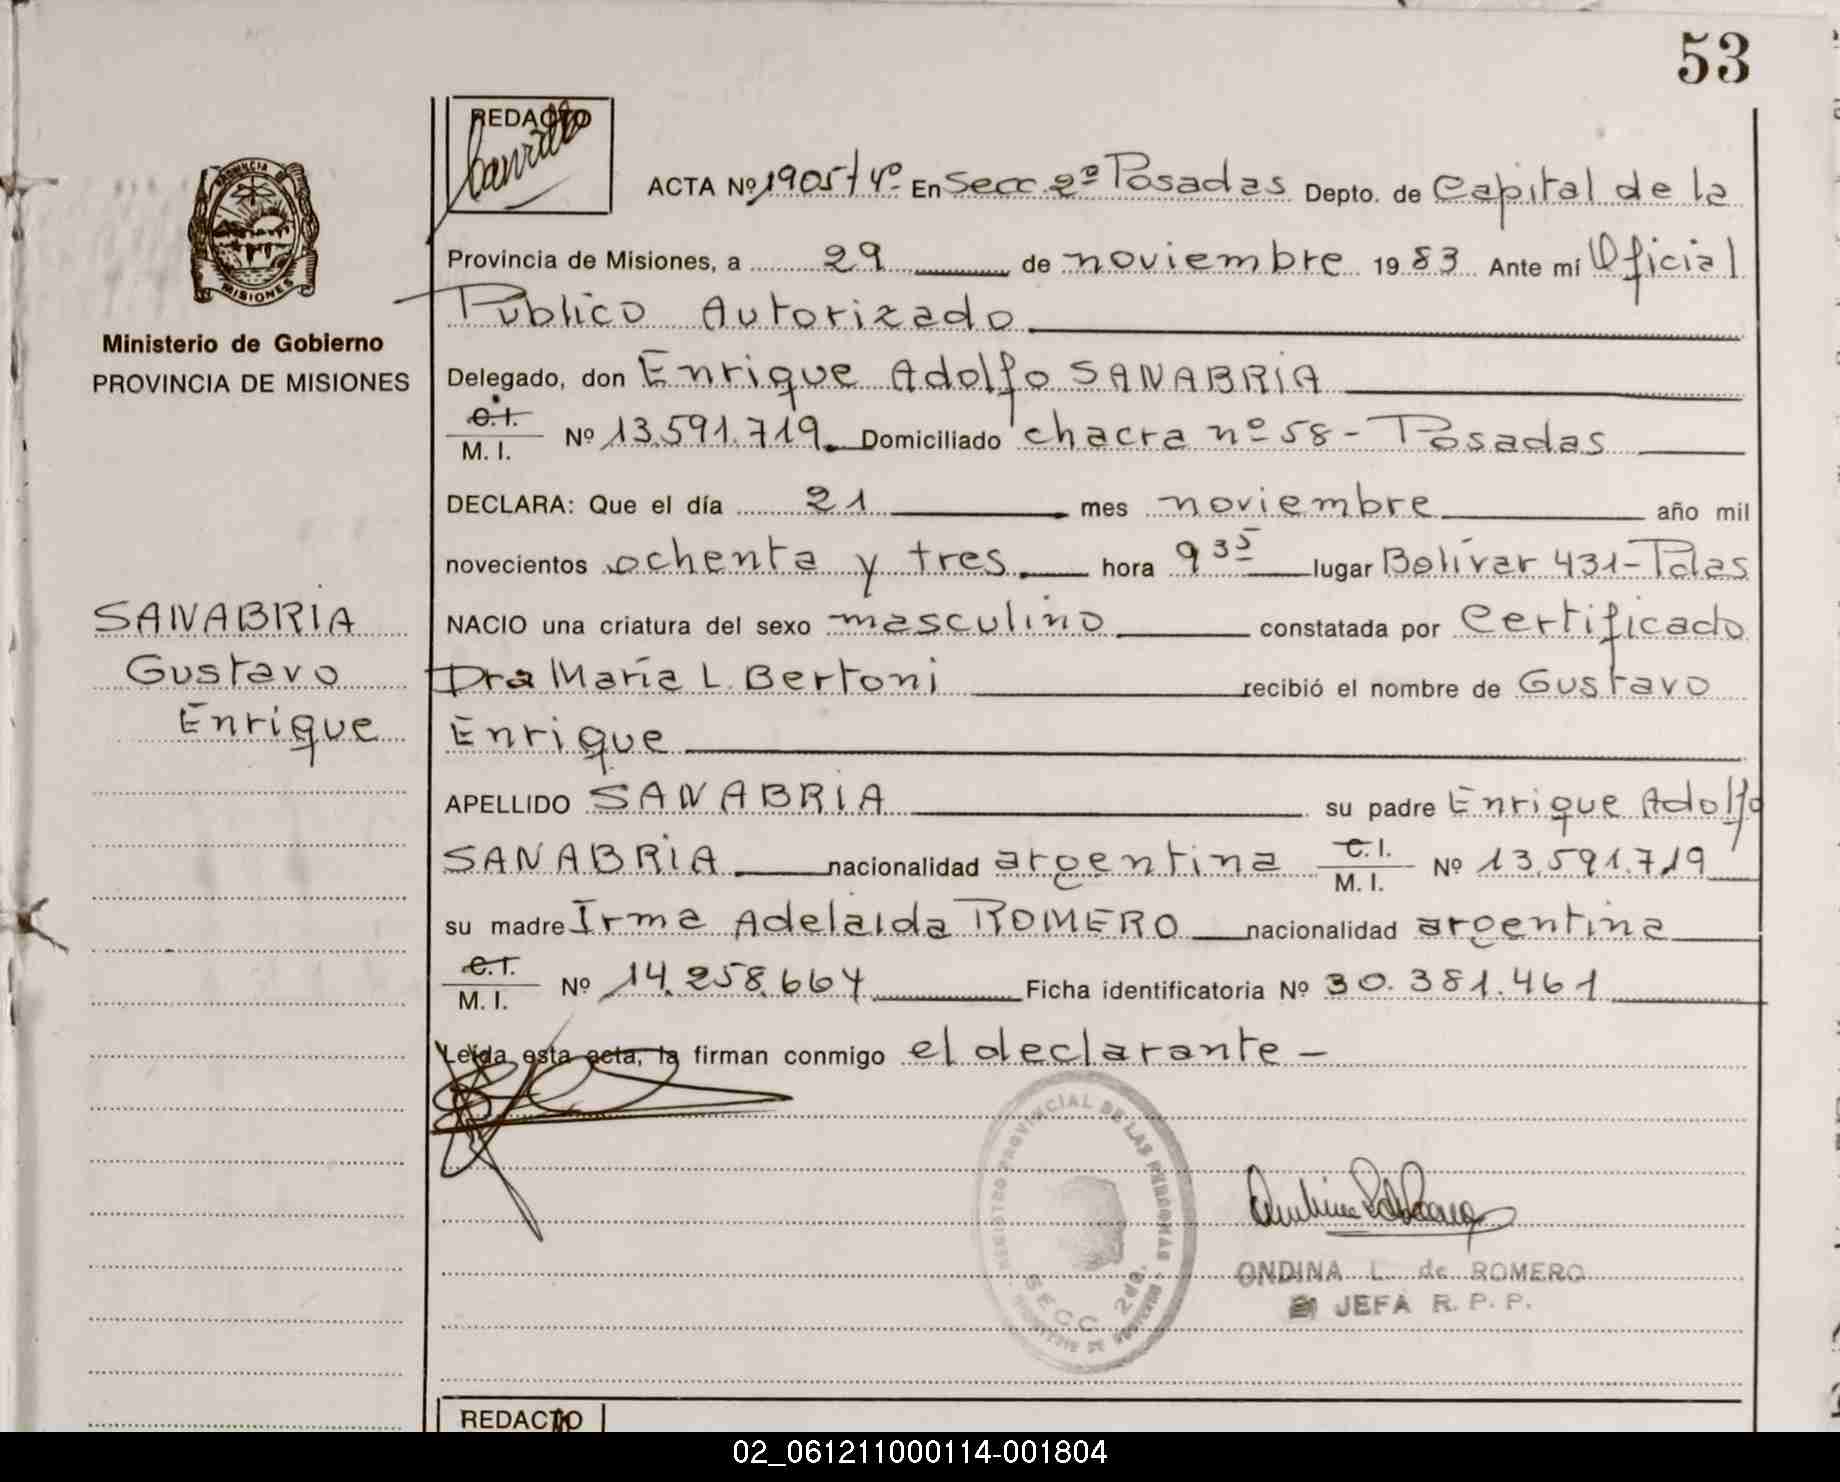 53
REDACTO
ACTA Nº 1905/4º En Secc. 2º Posadas Depto. de Capital de la
Provincia de Misiones, a 29 de noviembre 1983 Ante mí Oficial
Público Autorizado
Delegado, don Enrique Adolfo SANABRIA
C.I.
M. I. Nº 13.591.719. Domiciliado chacra nº 58 - Posadas
DECLARA: Que el día 21 mes noviembre año mil
novecientos ochenta y tres hora 9 35 lugar Bolívar 431 - Pdas
NACIO una criatura del sexo masculino constatada por Certificado
Dra María L. Bertoni recibió el nombre de Gustavo
Enrique
APELLIDO SANABRIA su padre Enrique Adolfo
SANABRIA nacionalidad argentina C.I.
M. I. Nº 13.591.719
su madre Irma Adelaida ROMERO nacionalidad argentina
C.I.
M. I. Nº 14.258.664 Ficha identificatoria Nº 30.381.461
Leída esta acta, la firman conmigo el declarante -
PROVINCIA DE
MISIONES
Ministerio de Gobierno
PROVINCIA DE MISIONES
SANABRIA
Gustavo
Enrique
REGISTRO PROVINCIAL DE LAS PERSONAS
SECC. 2da.
ONDINA L. de ROMERO
JEFA R. P. P.
REDACTO
02_061211000114-001804